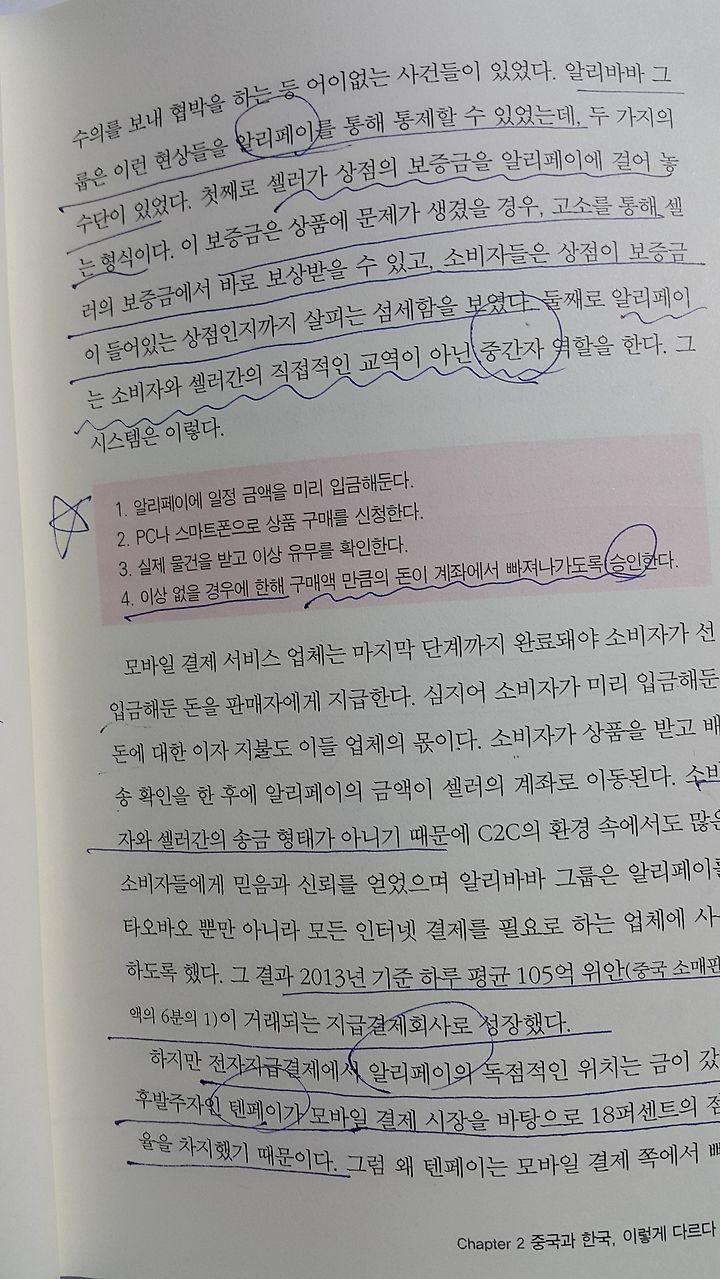 수의를 보내 협박을 하는 등 어이없는 사건들이 있었다. 알리바바 그
룹은 이런 현상들을 알리페이를 통해 통제할 수 있었는데, 두 가지의
수단이 있었다. 첫째로 셀러가 상점의 보증금을 알리페이에 걸어 놓
는 형식이다. 이 보증금은 상품에 문제가 생겼을 경우, 고소를 통해 셀
러의 보증금에서 바로 보상받을 수 있고, 소비자들은 상점이 보증금
이 들어있는 상점인지까지 살피는 섬세함을 보였다. 둘째로 알리페이
는 소비자와 셀러간의 직접적인 교역이 아닌 중간자 역할을 한다. 그
시스템은 이렇다.
1. 알리페이에 일정 금액을 미리 입금해둔다.
2. PC나 스마트폰으로 상품 구매를 신청한다.
3. 실제 물건을 받고 이상 유무를 확인한다.
4. 이상 없을 경우에 한해 구매액 만큼의 돈이 계좌에서 빠져나가도록 승인한다.
모바일 결제 서비스 업체는 마지막 단계까지 완료돼야 소비자가 선
입금해둔 돈을 판매자에게 지급한다. 심지어 소비자가 미리 입금해둔
돈에 대한 이자 지불도 이들 업체의 몫이다. 소비자가 상품을 받고 배
송 확인을 한 후에 알리페이의 금액이 셀러의 계좌로 이동된다. 소비
자와 셀러간의 송금 형태가 아니기 때문에 C2C의 환경 속에서도 많은
소비자들에게 믿음과 신뢰를 얻었으며 알리바바 그룹은 알리페이를
타오바오 뿐만 아니라 모든 인터넷 결제를 필요로 하는 업체에 사
하도록 했다. 그 결과 2013년 기준 하루 평균 105억 위안(중국 소매판
액의 6분의 1)이 거래되는 지급결제회사로 성장했다.
하지만 전자자급결제에서 알리페이의 독점적인 위치는 금이 갔
후발주자인 텐페이가 모바일 결제 시장을 바탕으로 18퍼센트의 점
율을 차지했기 때문이다. 그럼 왜 텐페이는 모바일 결제 쪽에서
Chapter 2 중국과 한국, 이렇게 다르다